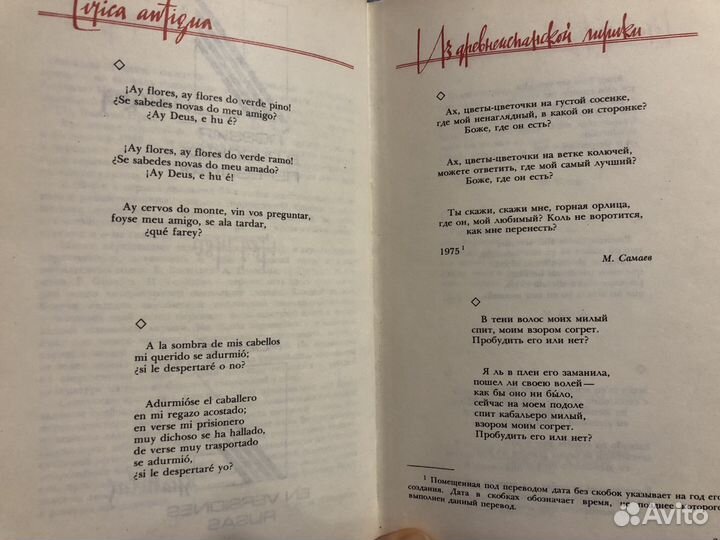 Lírica antigua
¡Ay flores, ay flores do verde pino!
¿Se sabedes novas do meu amigo?
¿Ay Deus, e hu é?
¡Ay flores, ay flores do verde ramo!
¿Se sabedes novas do meu amado?
¡Ay Deus, e hu é!
Ay cervos do monte, vin vos preguntar,
foyse meu amigo, se ala tardar,
¿qué farey?
A la sombra de mis cabellos
mi querido se adurmió;
¿si le despertaré o no?
Adurmióse el caballero
en mi regazo acostado;
en verse mi prisionero
muy dichoso se ha hallado,
de verse muy trasportado
se adurmió,
¿si le despertaré yo?
EN VERSIONES
RUSAS
Из древнеиспанской лирики
Ах, цветы-цветочки на густой сосенке,
где мой ненаглядный, в какой он сторонке?
Боже, где он есть?
Ах, цветы-цветочки на ветке колючей,
можете ответить, где мой самый лучший?
Боже, где он есть?
Ты скажи, скажи мне, горная орлица,
где он, мой любимый? Коль не воротится,
как мне перенесть?
1975¹
М. Самаев
В тени волос моих милый
спит, моим взором согрет.
Пробудить его или нет?
Я ль в плен его заманила,
пошел ли своею волей—
как бы оно ни было,
сейчас на моем подоле
спит кабальеро милый,
взором моим согрет.
Пробудить его или нет?
¹ Помещенная под переводом дата без скобок указывает на год его
создания. Дата в скобках обозначает время, не позднее которого
выполнен данный перевод.
Avito